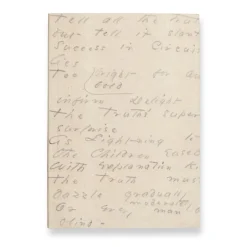 Tell all the truth
but tell it slant
Success in Circuit
lies
Too bright for our
bold
infirm Delight
The Truth's super
surprise
As Lightning to
the Children eased
With explanation
the Truth must
Dazzle gradually
moderately
Or every man
blind -